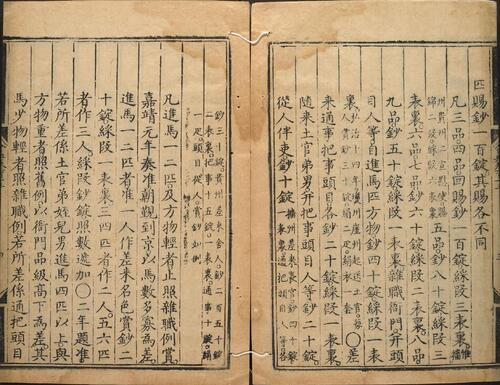 匹賜鈔一百錠其賜各不同
凡三品四品回賜鈔一百錠綵段三表裏
州貴州二宣慰使賜
五品鈔八十錠綵段三
表裏六品七品鈔六十錠綵段二表裏八品
九品鈔五十錠綵段一表裏雜職衙門并頭
目人等自進馬匹方物鈔四十錠綵段一表
裏
弘治十四年
〇差
來通事把事頭目各鈔二十錠綵段一表裏
隨來土官弟男并把事頭目人等鈔二十錠
從人伴吏鈔十錠
鈔三十錠
凡進馬一二匹及方物輕者止照雜職例賞
嘉靖元年奏准朝覲到京以馬數多寡為差
進馬一二匹者准一人作差來名色賞鈔二
十錠綵段一表裏三四匹者作二人五六匹
者作三人綵段鈔錠照數遞加〇二年題准
若所差係土官弟姪兒男進馬四匹以上與
方物重者照舊例以衙門品級高下為差其
馬少物輕者照雜職例若所差係通把頭目